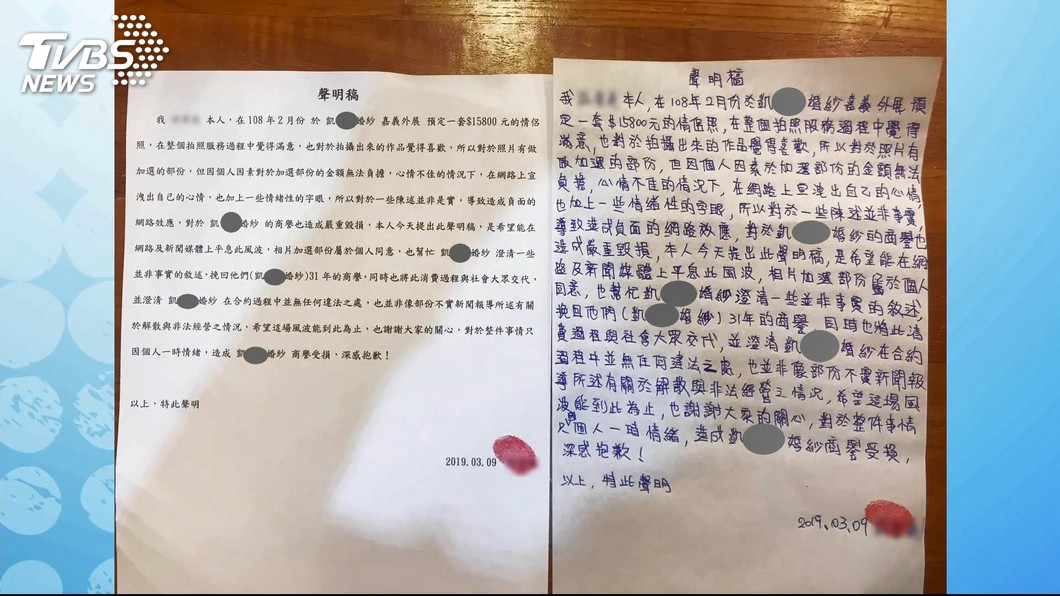 TVBS
NEWS
聲明稿
我 本人，在 108 年 2 月份 於 凱 婚紗 嘉義外展 預定一套$15800 元的情侶
照，在整個拍照服務過程中覺得滿意，也對於拍攝出來的作品覺得喜歡，所以對於照片有做
加選的部份，但因個人因素對於加選部份的金額無法負擔，心情不佳的情況下，在網路上宣
洩出自己的心情，也加上一些情緒性的字眼，所以對於一些陳述並非是實，導致造成負面的
網路效應，對於 凱 婚紗 的商譽也造成嚴重毀損，本人今天提出此聲明稿，是希望能在
網路及新聞媒體上平息此風波，相片加選部份屬於個人同意，也幫忙 凱 婚紗 澄清一些
並非事實的敘述，挽回他們(凱 婚紗)31 年的商譽，同時也將此消費過程與社會大眾交代，
並澄清 凱 婚紗 在合約過程中並無任何違法之處，也並非像部份不實新聞報導所述有關
於解散與非法經營之情況，希望這場風波能到此為止，也謝謝大家的關心，對於整件事情只
因個人一時情緒，造成 凱 婚紗 商譽受損，深感抱歉！
以上，特此聲明
2019.03.09
聲明稿
我 本人，在108年2月份於凱 婚紗嘉義外展 預
定一套$15800元的情侶照，在整個拍照服務過程中覺得
滿意，也對於拍攝出來的作品覺得喜歡，所以對於照片有
做加選的部份，但因個人因素於加選部份的金額無法
負擔，心情不佳的情況下，在網路上宣洩出自己的心情，
也加上一些情緒性的字眼，所以對於一些陳述並非事實，
導致造成負面的網路效應，對於凱 婚紗的商譽也
造成嚴重毀損，本人今天提出此聲明稿，是希望能在網
路及新聞媒體上平息此風波，相片加選部份屬於個人
同意，也幫忙凱 婚紗澄清一些並非事實的敘述，
挽回他們(凱 婚紗)31年的商譽，同時也將此消
費過程與社會大眾交代，並澄清凱 婚紗在合約
過程中並無任何違法之處，也並非像部份不實新聞報
導所述有關於解散與非法經營之情況，希望這場風
波能到此為止，也謝謝大家的關心，對於整件事情
只因個人一時情緒，造成凱 婚紗商譽受損，
深感抱歉！
以上，特此聲明
2019.03.09